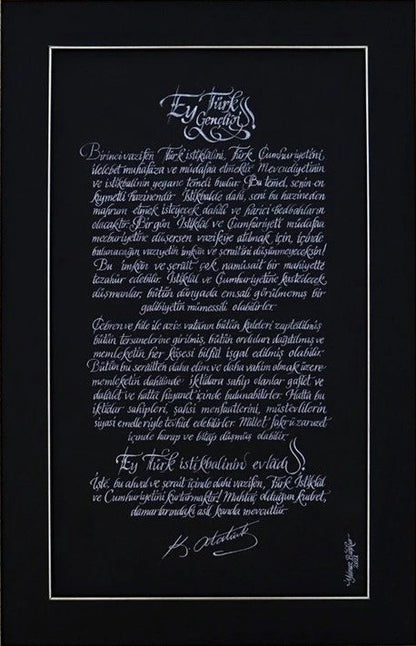 Ey Türk
Gençliği!
Birinci vazifen Türk istiklâlini, Türk Cumhuriyetini,
ilelebet muhafaza ve müdafaa etmektir. Mevcudiyetinin
ve istikbalinin yegane temeli budur. Bu temel, senin en
kıymetli hazinendir. İstikbalde dahi, seni bu hazineden
mahrum etmek isteyecek dahilî ve haricî bedhahların
olacaktır. Bir gün İstiklâl ve Cumhuriyeti müdafaa
mecburiyetine düşersen vazifeye atılmak için, içinde
bulunacağın vaziyetin imkân ve şeraitini düşünmeyeceksin!
Bu imkân ve şerait çok namüsait bir mahiyette
tezahür edebilir. İstiklâl ve Cumhuriyetine kastedecek
düşmanlar, bütün dünyada emsali görülmemiş bir
galibiyetin mümessili olabilirler.
Cebren ve hile ile aziz vatanın bütün kaleleri zaptedilmiş
bütün tersanelerine girilmiş, bütün orduları dağıtılmış ve
memleketin her köşesi bilfiil işgal edilmiş olabilir.
Bütün bu şeraitten daha elim ve daha vahim olmak üzere
memleketin dahilinde iktidara sahip olanlar gaflet ve
dalâlet ve hattâ hıyanet içinde bulunabilirler. Hattâ bu
iktidar sahipleri, şahsi menfaatlerini, müstevlilerin
siyasi emelleriyle tevhid edebilirler. Millet fakrü zaruret
içinde harap ve bitap düşmüş olabilir.
Ey Türk istikbalinin evladı!
İşte, bu ahval ve şerait içinde dahi vazifen, Türk İstiklâl
ve Cumhuriyetini kurtarmaktır! Muhtaç olduğun kudret,
damarlarındaki asil kanda mevcuttur.
K. Atatürk